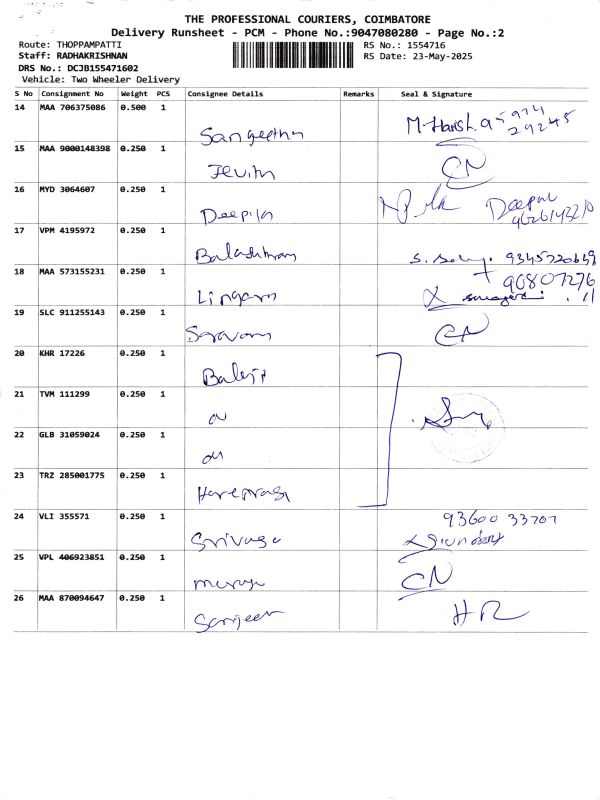 THE PROFESSIONAL COURIERS, COIMBATORE
Delivery Runsheet - PCM - Phone No.:9047080280 - Page No.:2
Route: THOPPAMPATTI
RS No.: 1554716
Staff: RADHAKRISHNAN
RS Date: 23-May-2025
DRS No.: DCJB155471602
Vehicle: Two Wheeler Delivery
S No Consignment No Weight PCS Consignee Details Remarks Seal & Signature
14 MAA 706375086 0.500 1 Sangeetha M. Harish
15 MAA 9000148398 0.250 1 CN
16 MYD 3064607 0.250 1 Deepika Deepak
17 VPM 4195972 0.250 1
18 MAA 573155231 0.250 1 Lingam 90807276
19 SLC 911255143 0.250 1 Saravan
20 KHR 17226 0.250 1 Balaji
21 TVM 111299 0.250 1
22 GLB 31059024 0.250 1
23 TRZ 285001775 0.250 1
24 VLI 355571 0.250 1 93600 33707
25 VPL 406923851 0.250 1 CN
26 MAA 870094647 0.250 1 Sanjeev HR